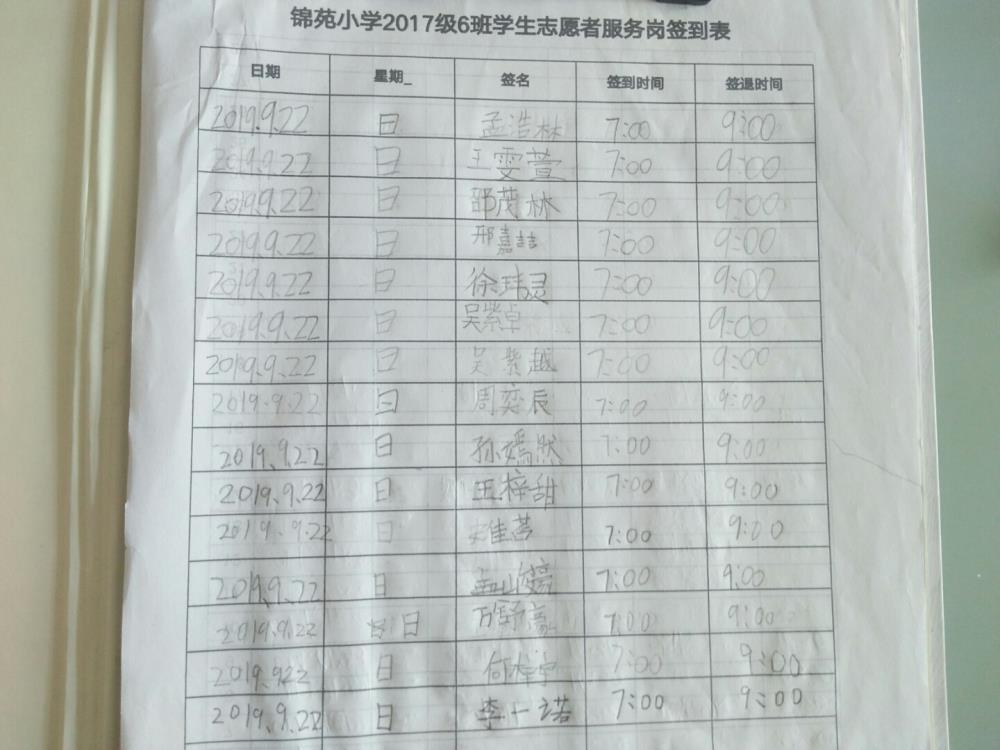 锦苑小学2017级6班学生志愿者服务岗签到表
日期 星期_ 签名 签到时间 签退时间
2019.9.22 日 孟浩林 7:00 9:00
2019.9.22 日 王雯萱 7:00 9:00
2019.9.22 日 邵茂林 7:00 9:00
2019.9.22 日 邢嘉喆 7:00 9:00
2019.9.22 日 徐玮灵 7:00 9:00
2019.9.22 日 吴紫卓 7:00 9:00
2019.9.22 日 吴紫越 7:00 9:00
2019.9.22 日 周奕辰 7:00 9:00
2019.9.22 日 孙嫣然 7:00 9:00
2019.9.22 日 王梓甜 7:00 9:00
2019.9.22 日 7:00 9:00
2019.9.22 日 7:00 9:00
2019.9.22 日 万舒豪 7:00 9:00
2019.9.22 日 7:00 9:00
2019.9.22 日 李一诺 7:00 9:00